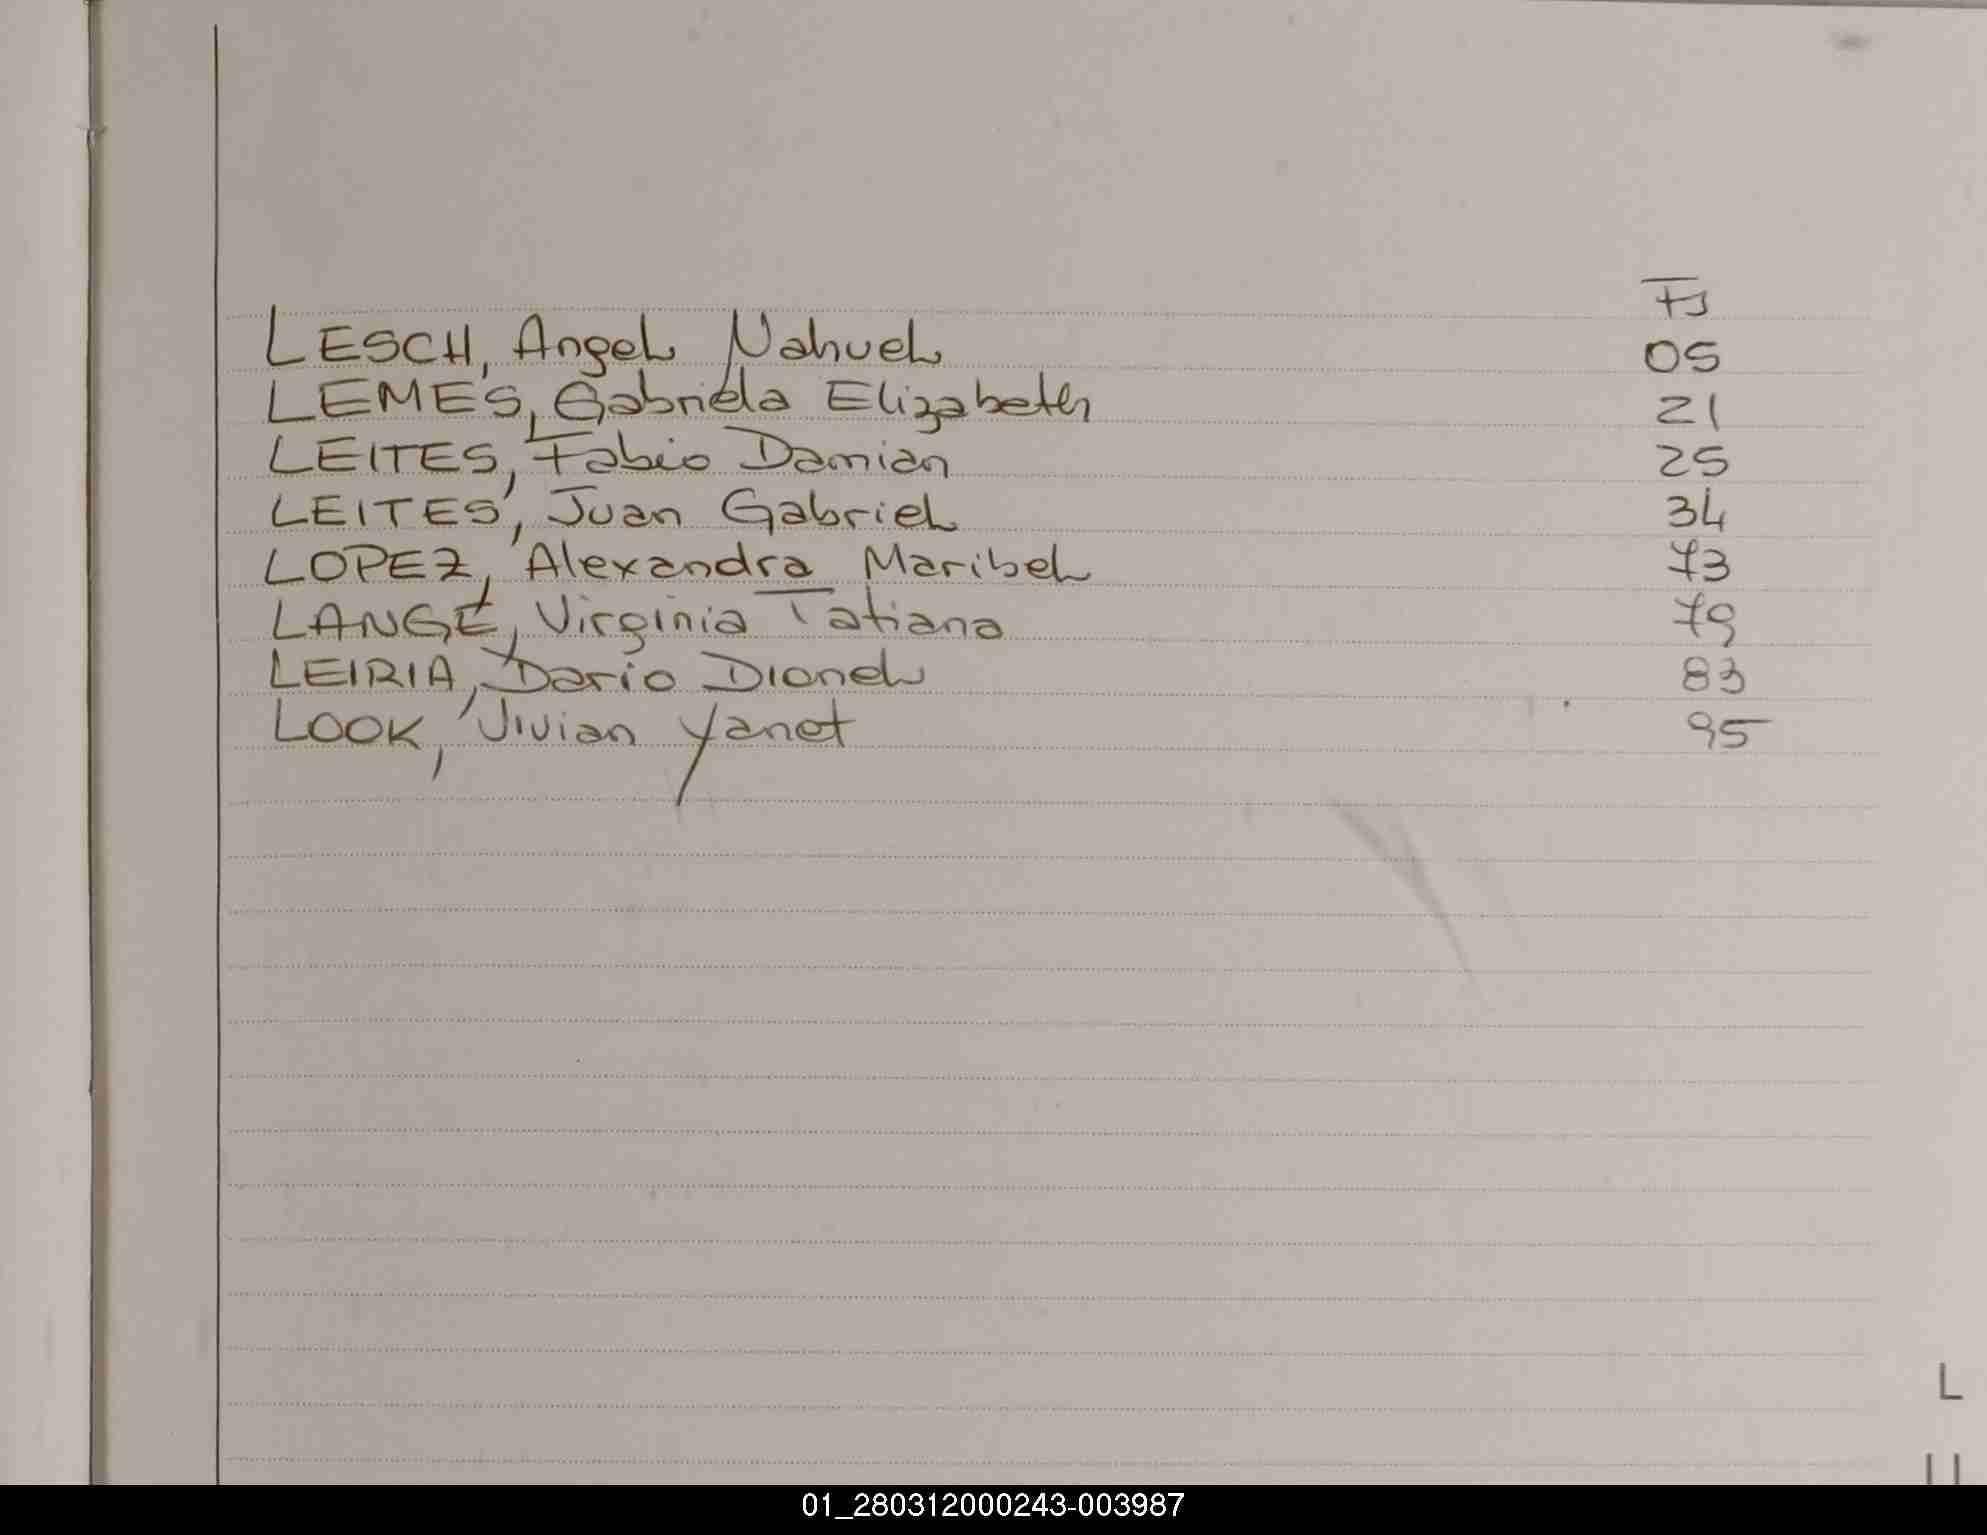 Fs
LESCH, Angel Nahuel 05
LEMES, Gabriela Elizabeth 21
LEITES, Fabio Damian 25
LEITES, Juan Gabriel 34
LOPEZ, Alexandra Maribel 73
LANGE, Virginia Tatiana 79
LEIRIA, Dario Dionel 83
LOOK, Vivian Yanet 95
L
01_280312000243-003987